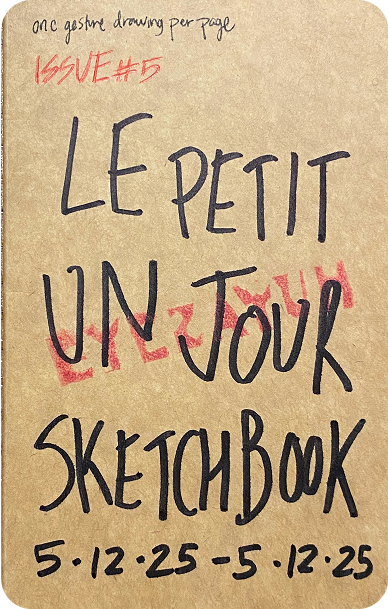 one gesture drawing per page
ISSUE #5
LE PETIT
UN JOUR
SKETCHBOOK
5·12·25-5·12·25